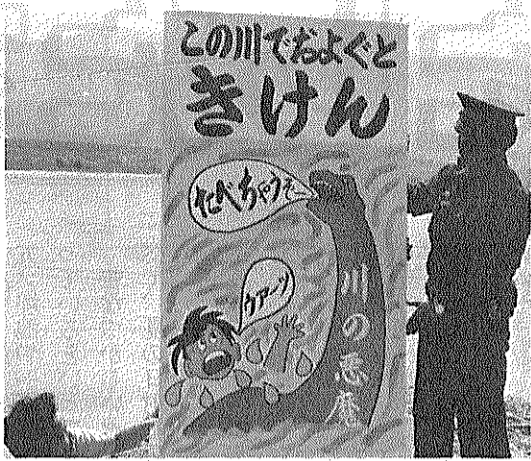 この川でおよぐと
きけん
たべちゃうぞー
ウアーッ
川の悪魔